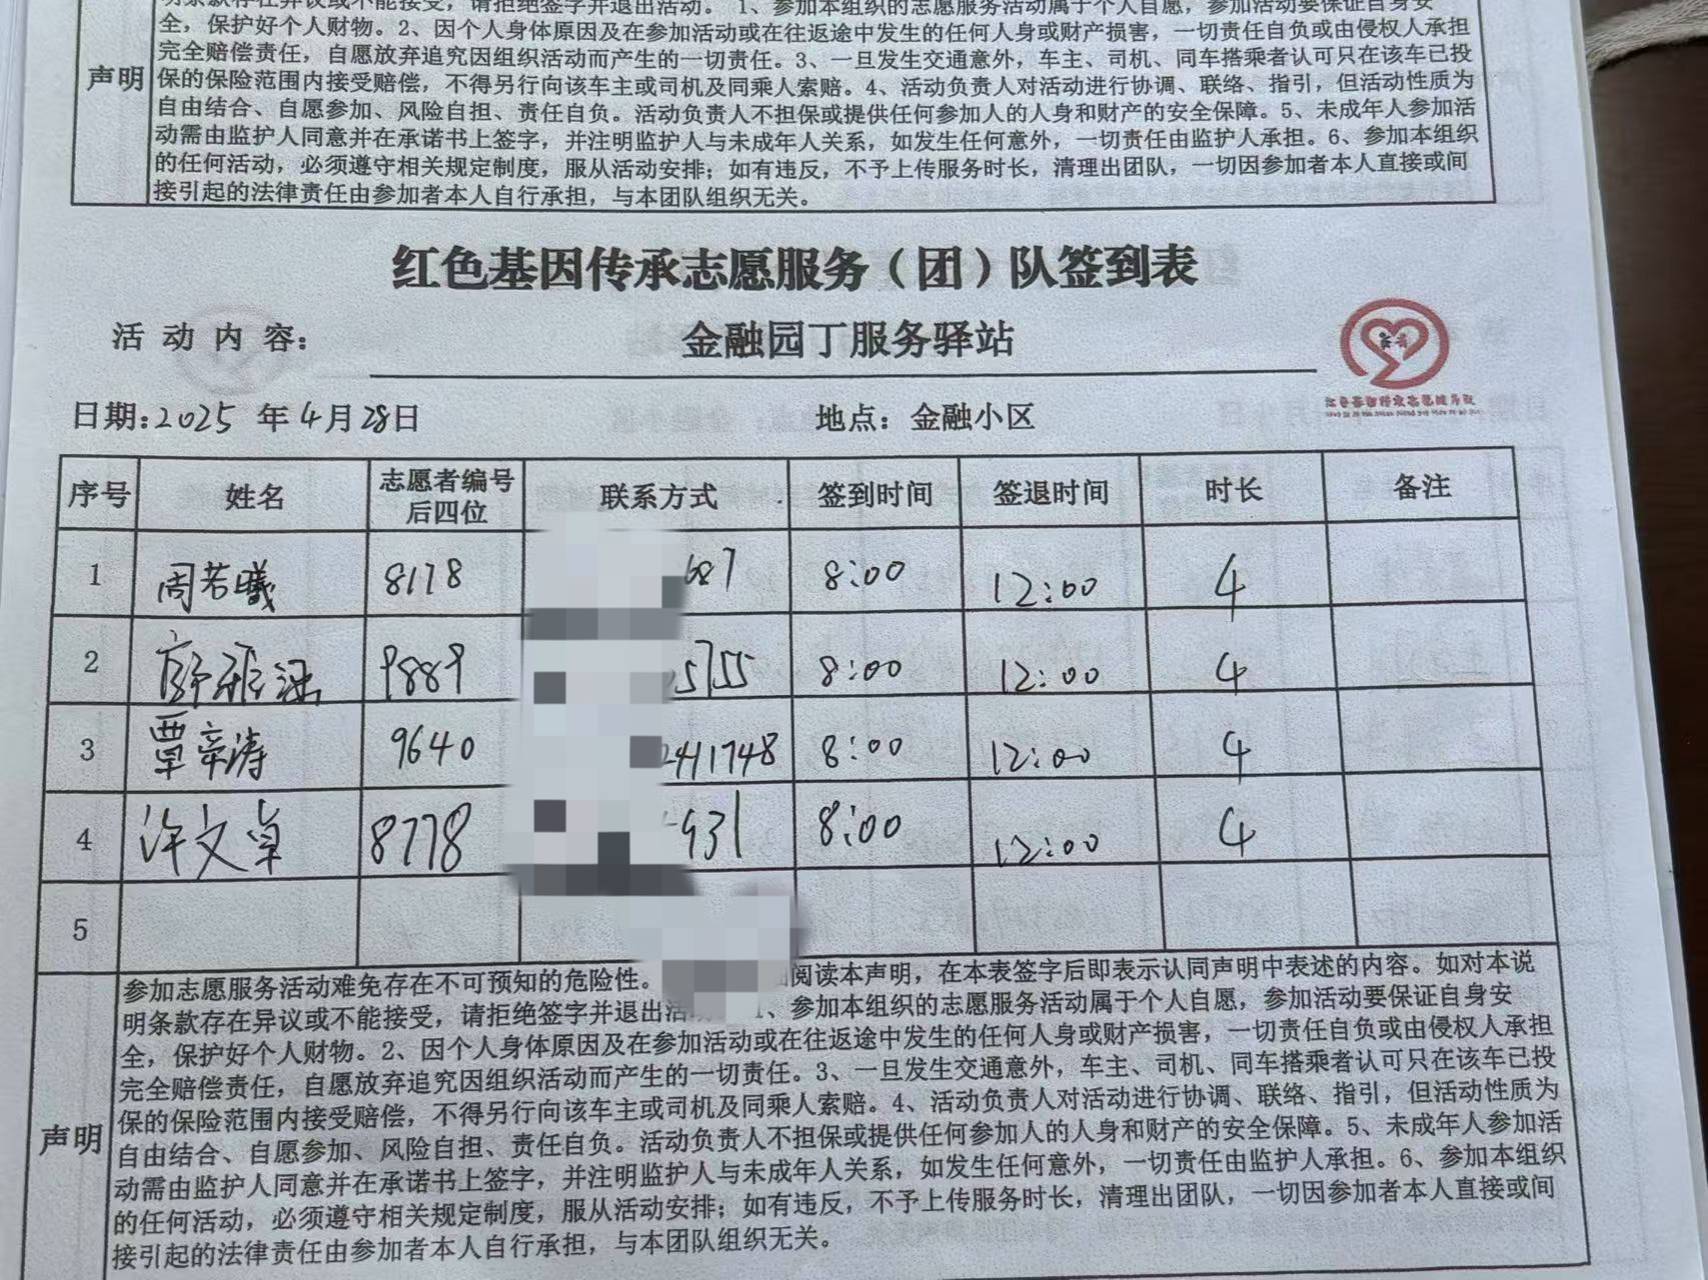 明条款存在异议或不能接受，请拒绝签字并退出活动。1、参加本组织的志愿服务活动属于个人自愿，参加活动要保证自身安
全，保护好个人财物。2、因个人身体原因及在参加活动或在往返途中发生的任何人身或财产损害，一切责任自负或由侵权人承担
完全赔偿责任，自愿放弃追究因组织活动而产生的一切责任。3、一旦发生交通意外，车主、司机、同车搭乘者认可只在该车已投
声明 保的保险范围内接受赔偿，不得另行向该车主或司机及同乘人索赔。4、活动负责人对活动进行协调、联络、指引，但活动性质为
自由结合、自愿参加、风险自担、责任自负。活动负责人不担保或提供任何参加人的人身和财产的安全保障。5、未成年人参加活
动需由监护人同意并在承诺书上签字，并注明监护人与未成年人关系，如发生任何意外，一切责任由监护人承担。6、参加本组织
的任何活动，必须遵守相关规定制度，服从活动安排；如有违反，不予上传服务时长，清理出团队，一切因参加者本人直接或间
接引起的法律责任由参加者本人自行承担，与本团队组织无关。
红色基因传承志愿服务（团）队签到表
活动内容： 金融园丁服务驿站
日期:2025 年4月28日 地点：金融小区
序号 姓名 志愿者编号后四位 联系方式 签到时间 签退时间 时长 备注
1 周若曦 8178 687 8:00 12:00 4
2 廖雅涵 9889 5755 8:00 12:00 4
3 覃辛涛 9640 241748 8:00 12:00 4
4 许文卓 8778 931 8:00 12:00 4
5
参加志愿服务活动难免存在不可预知的危险性。 阅读本声明，在本表签字后即表示认同声明中表述的内容。如对本说
明条款存在异议或不能接受，请拒绝签字并退出活 1、参加本组织的志愿服务活动属于个人自愿，参加活动要保证自身安
全，保护好个人财物。2、因个人身体原因及在参加活动或在往返途中发生的任何人身或财产损害，一切责任自负或由侵权人承担
完全赔偿责任，自愿放弃追究因组织活动而产生的一切责任。3、一旦发生交通意外，车主、司机、同车搭乘者认可只在该车已投
保的保险范围内接受赔偿，不得另行向该车主或司机及同乘人索赔。4、活动负责人对活动进行协调、联络、指引，但活动性质为
声明 自由结合、自愿参加、风险自担、责任自负。活动负责人不担保或提供任何参加人的人身和财产的安全保障。5、未成年人参加活
动需由监护人同意并在承诺书上签字，并注明监护人与未成年人关系，如发生任何意外，一切责任由监护人承担。6、参加本组织
的任何活动，必须遵守相关规定制度，服从活动安排；如有违反，不予上传服务时长，清理出团队，一切因参加者本人直接或间
接引起的法律责任由参加者本人自行承担，与本团队组织无关。